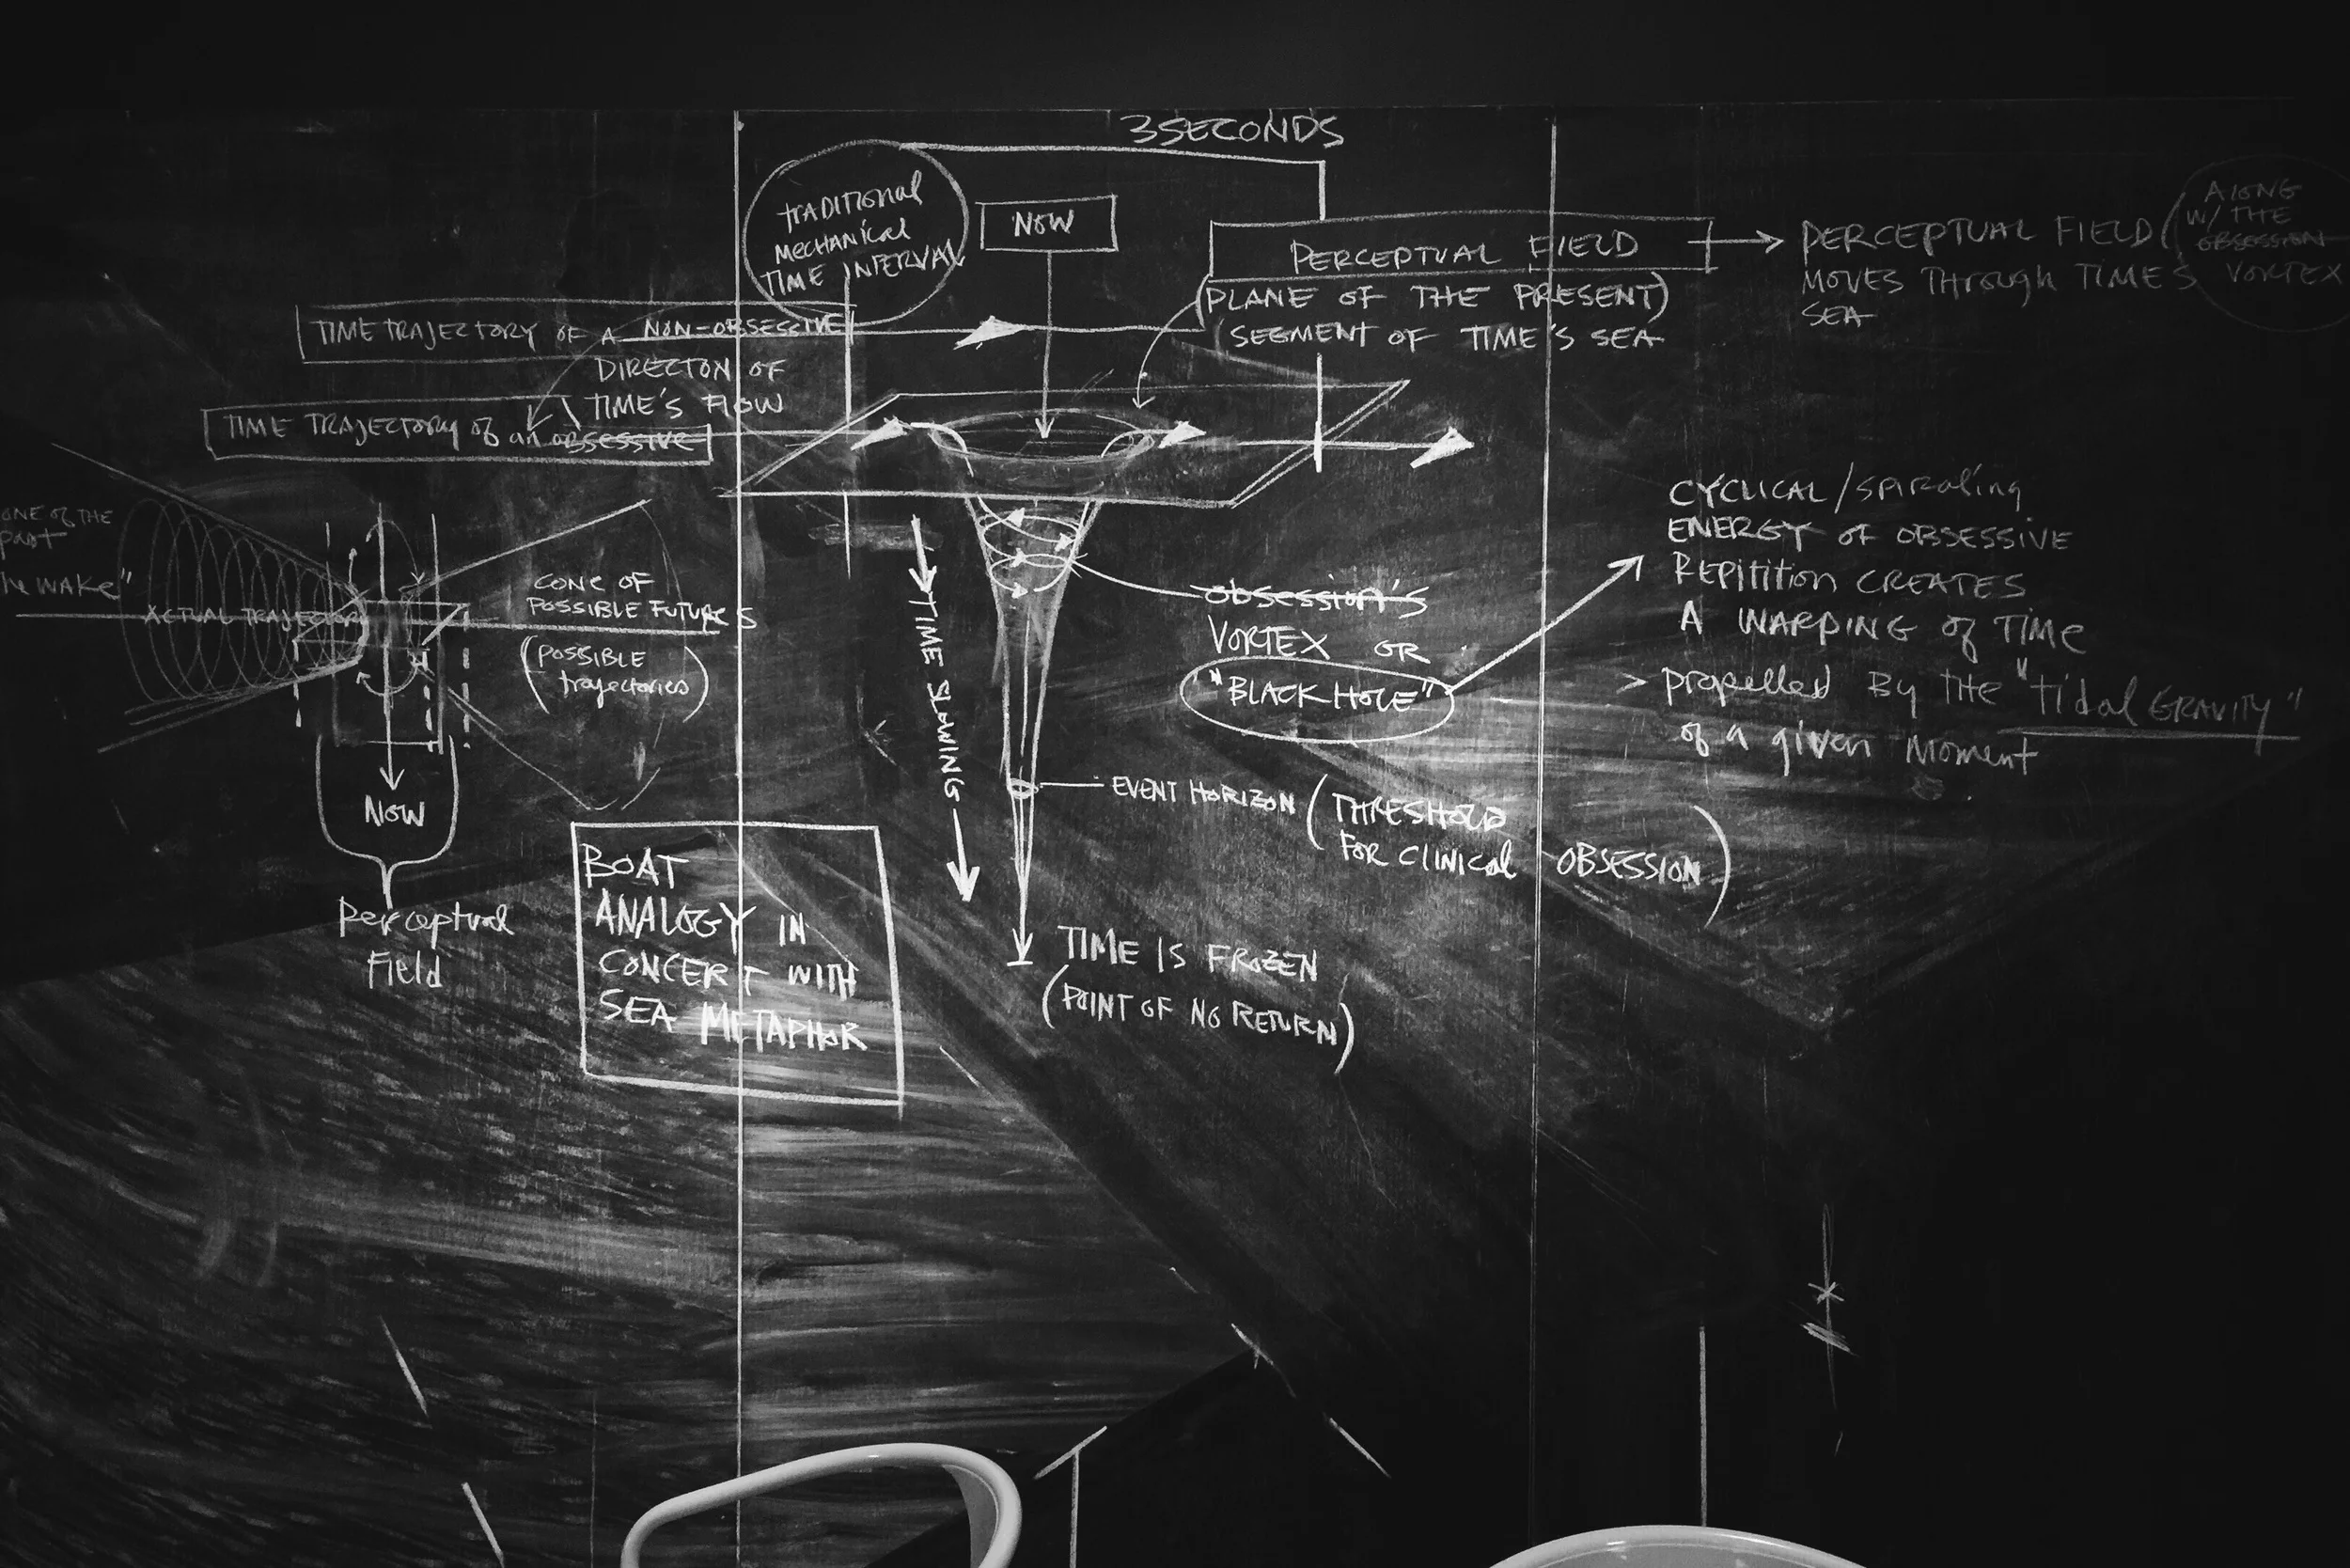 3 SECONDS
TRADITIONAL
MECHANICAL
TIME INTERVAL
NOW
PERCEPTUAL FIELD
(PLANE OF THE PRESENT)
(SEGMENT OF TIME'S SEA
PERCEPTUAL FIELD (
MOVES THROUGH TIME'S
SEA
ALONG
W/ THE
OBSESSION
VORTEX
TIME TRAJECTORY OF A NON-OBSESSIVE
DIRECTON OF
TIME'S FLOW
TIME TRAJECTORY of an obsessive
ONE OF THE
past
he WAKE"
ACTUAL TRAJECTORY
CONE OF
POSSIBLE FUTURES
(POSSIBLE
trajectories)
NOW
Perceptual
Field
TIME SLOWING
obsession's
VORTEX OR
"BLACK HOLE"
CYCLICAL/spiraling
ENERGY OF OBSESSIVE
REPITITION CREATES
A WARPING of TIME
> propelled BY THE "tidal GRAVITY"
of a given moment
EVENT HORIZON (THRESHOLD
FOR CLINICAL OBSESSION)
TIME IS FROZEN
(POINT OF NO RETURN)
BOAT
ANALOGY IN
CONCERT WITH
SEA METAPHOR